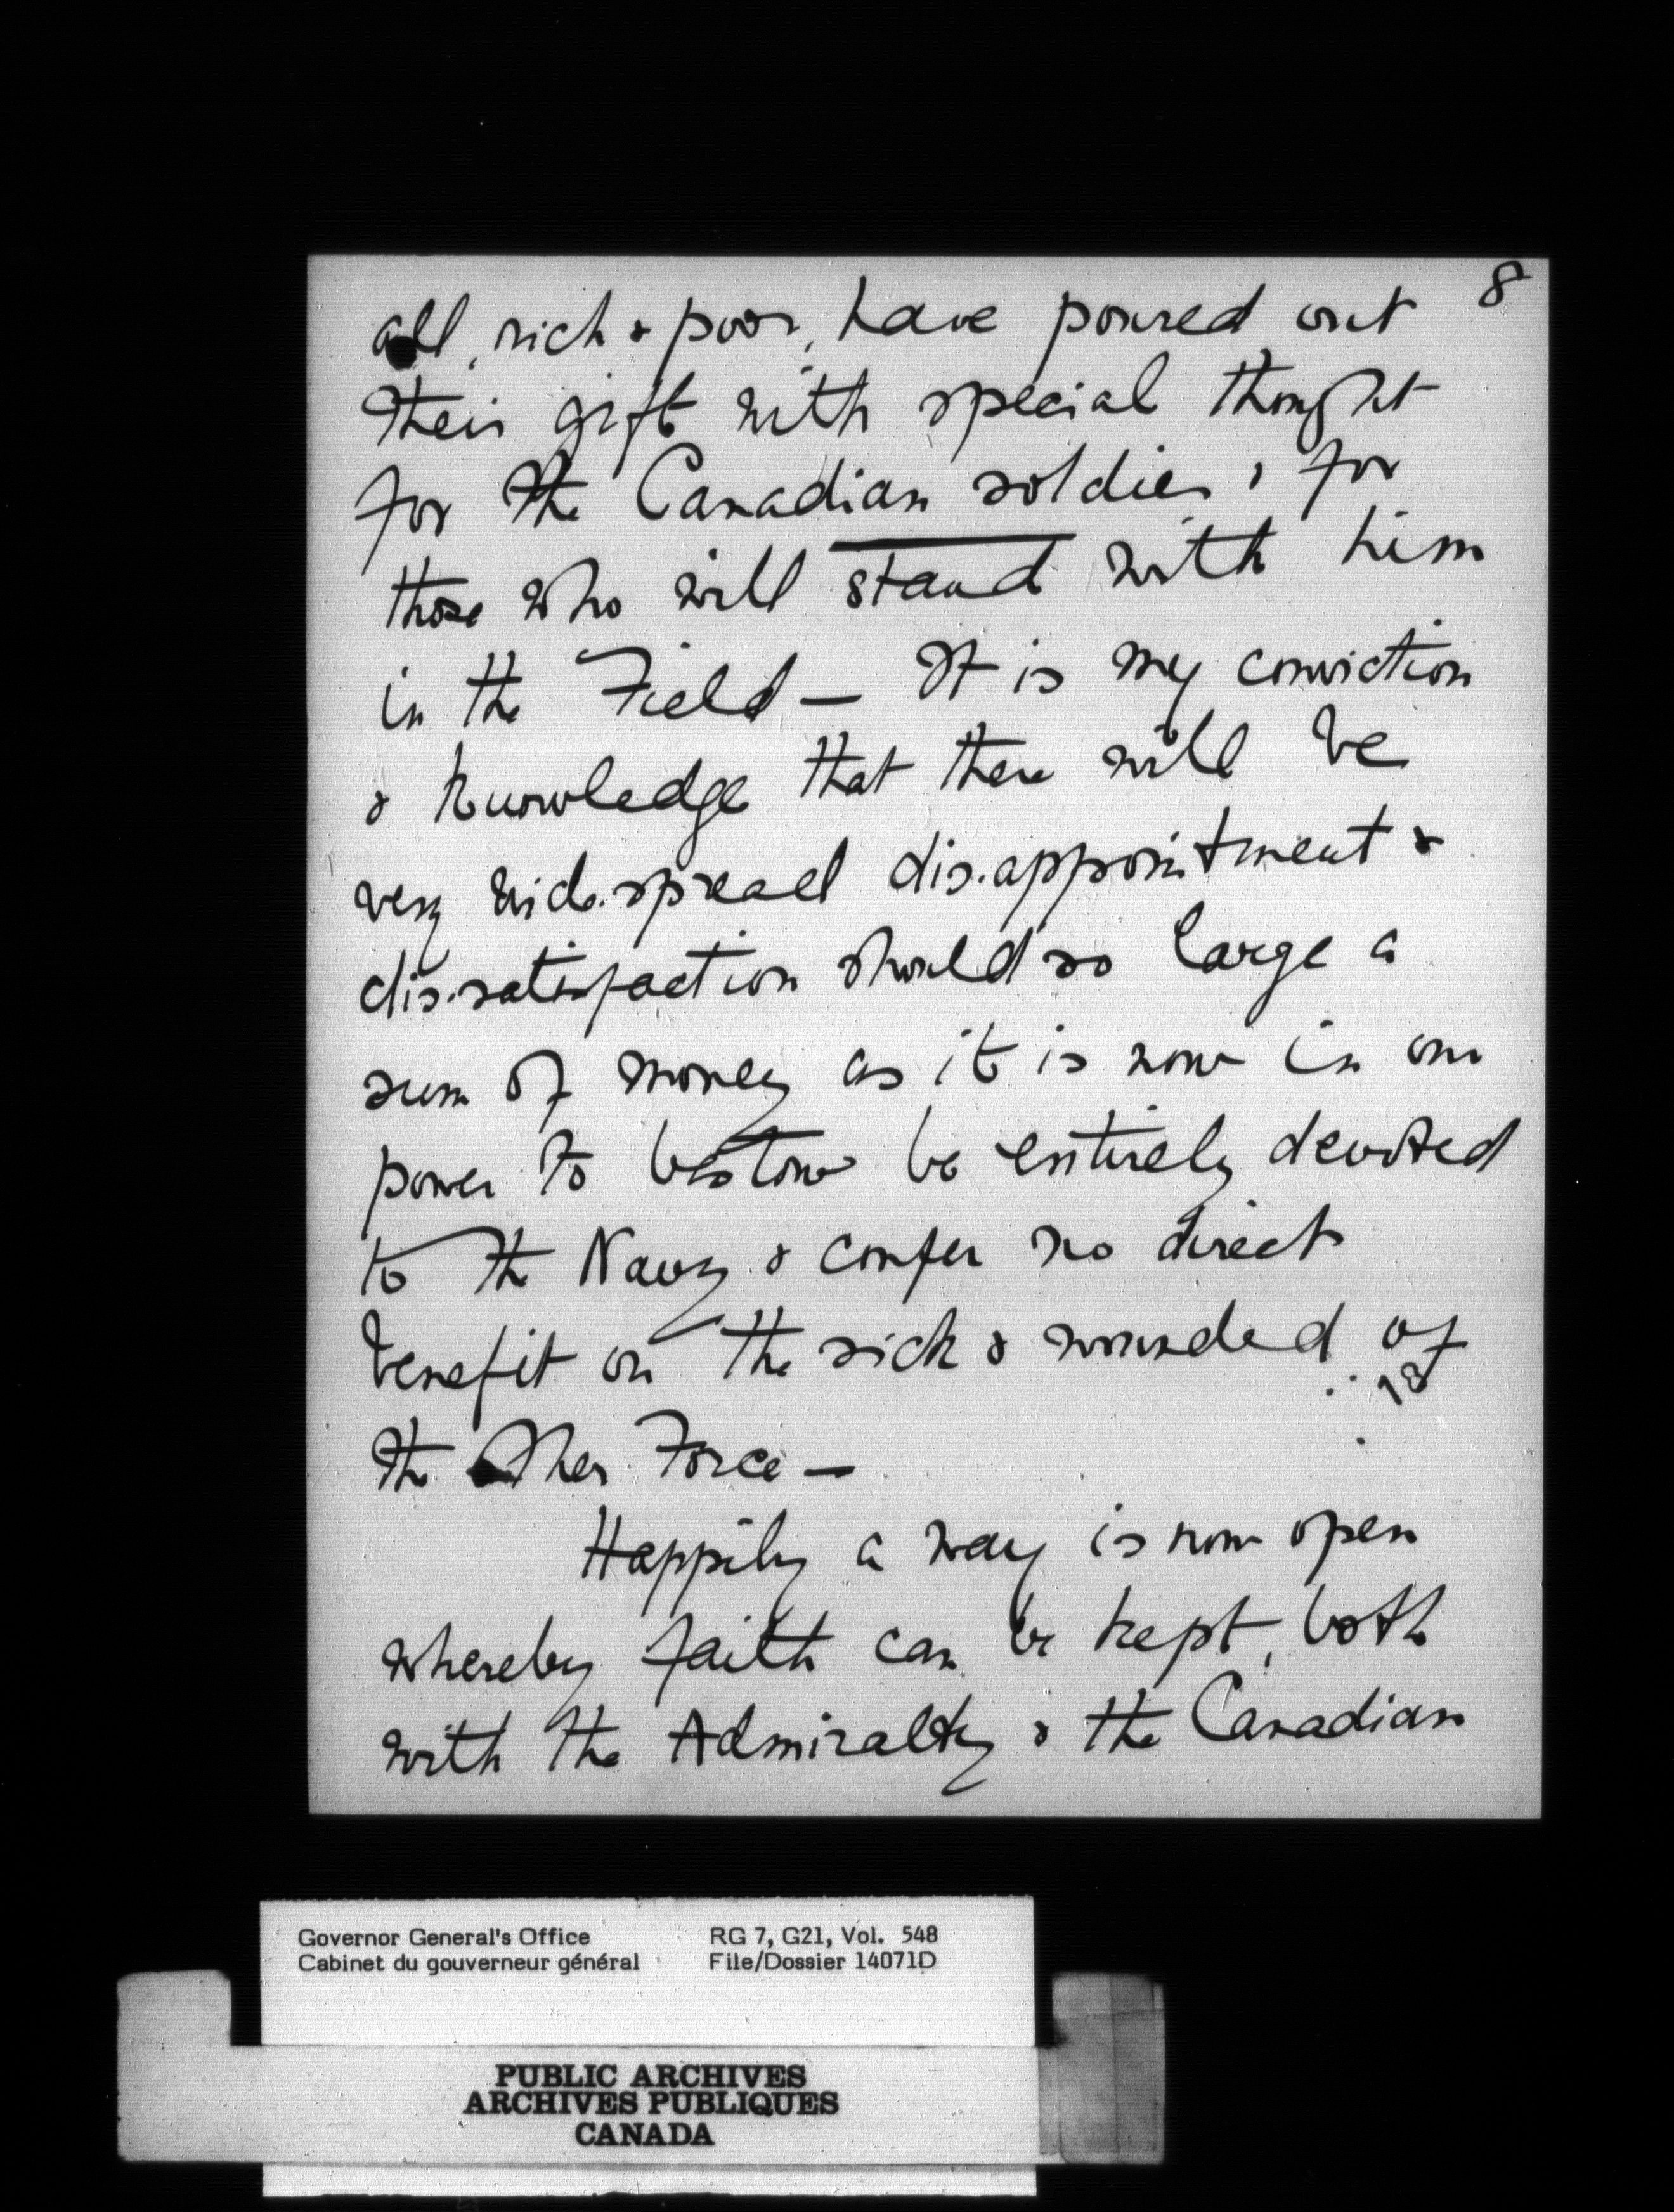 8
all, rich & poor, have poured out
their gift with special thought
for the Canadian soldier & for
those who will stand with him
in the Field — It is my conviction
& knowledge that there will be
very wide-spread dis-appointment &
dis-satisfaction should so large a
sum of money as it is now in our
power to bestow be entirely devoted
to the Navy & confer no direct
benefit on the sick & wounded of
the other Force —
Happily a way is now open
whereby faith can be kept, both
with the Admiralty & the Canadian
Governor General's Office RG 7, G21, Vol. 548
Cabinet du gouverneur général File/Dossier 14071D
PUBLIC ARCHIVES
ARCHIVES PUBLIQUES
CANADA